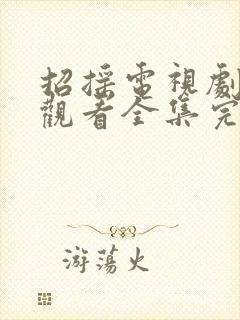 招摇電視劇
觀看全集完
游蕩火